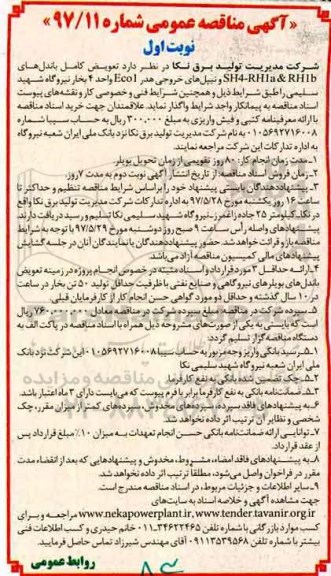 «آگهی مناقصه عمومی شماره ۹۷/۱۱»
نوبت اول
شرکت مدیریت تولید برق نکا در نظر دارد تعویض کامل باندل‌های
SH4-RH1a & RH1b و نیپل‌های خروجی هدر Eco1 واحد ۴ بخار نیروگاه شهید
سلیمی را طبق شرایط ذیل و همچنین شرایط فنی و خصوصی کار و نقشه‌های پیوست
اسناد مناقصه به پیمانکار واجد شرایط واگذار نماید. علاقمندان جهت خرید اسناد مناقصه
با ارائه معرفینامه کتبی و فیش واریزی به مبلغ ۳۰۰,۰۰۰ ریال به حساب سیبا شماره
۰۱۰۵۶۹۲۷۱۶۰۰۸ به نام شرکت مدیریت تولید برق نکا نزد بانک ملی ایران شعبه نیروگاه
به اداره تدارکات این شرکت مراجعه نمایند.
۱ـ مدت زمان انجام کار: ۸۰ روز تقویمی از زمان تحویل بویلر.
۲ـ زمان فروش اسناد مناقصه: از تاریخ انتشار آگهی نوبت دوم به مدت ۷ روز.
۳ـ پیشنهاددهندگان بایستی پیشنهاد خود را براساس شرایط مناقصه تنظیم و حداکثر تا
ساعت ۱۶ روز یکشنبه مورخ ۹۷/۵/۲۸ به اداره تدارکات شرکت مدیریت تولید برق نکا واقع
در نکا ـ کیلومتر ۲۵ جاده زاغمرز ـ نیروگاه شهید سلیمی نکا تسلیم و رسید دریافت دارند.
پیشنهادهای واصله رأس ساعت ۹ صبح روز دوشنبه مورخ ۹۷/۵/۲۹ با توجه به شرایط
مناقصه باز و قرائت خواهد شد. حضور پیشنهاددهندگان یا نمایندگان آنان در جلسه گشایش
پیشنهادهای مالی کمیسیون مناقصه آزاد می‌باشد.
۴ـ ارائه حداقل ۳ مورد قرارداد و اسناد مثبته در خصوص انجام پروژه در زمینه تعویض
باندل‌های بویلرهای نیروگاهی و صنایع نفتی با ظرفیت حداقل تولید ۵۰ تن بخار در ساعت
در ۱۰ سال گذشته و حداقل دو مورد گواهی حسن انجام کار از کارفرمایان قبلی.
۵ـ سپرده شرکت در مناقصه: مبلغ سپرده شرکت در مناقصه معادل ۷۶۰,۰۰۰,۰۰۰ ریال
است که بایستی به یکی از صورت‌های مشروحه ذیل همراه با اسناد مناقصه در پاکت الف به
دستگاه مناقصه گزار تسلیم گردد.
۵ـ۱ـ رسید بانکی واریز وجه مزبور به حساب سیبا ۰۱۰۵۶۹۲۷۱۶۰۰۸ این شرکت نزد بانک
ملی ایران شعبه نیروگاه شهید سلیمی نکا
۵ـ۲ـ چک تضمین شده بانکی به نفع کارفرما.
۵ـ۳ـ ضمانت‌نامه بانکی به نفع کارفرما برابر با فرم پیوست که می‌بایست دارای ۳ ماه اعتبار باشد.
۶ـ به پیشنهادهای فاقد سپرده، سپرده‌های مخدوش، سپرده‌های کمتر از میزان مقرر، چک
شخصی و نظایر آن ترتیب اثر داده نخواهد شد.
۷ـ توانایی ارائه ضمانت‌نامه بانکی حسن انجام تعهدات به میزان ۱۰٪ مبلغ قرارداد پس
از عقد قرارداد.
۸ـ به پیشنهادهای فاقد امضاء، مشروط، مخدوش و پیشنهادهایی که بعد از انقضاء مدت
مقرر در فراخوان واصل می‌شود، مطلقا ترتیب اثر داده نخواهد شد.
۹ـ سایر اطلاعات و جزئیات مربوط، در اسناد مناقصه مندرج است.
جهت مشاهده آگهی و خلاصه اسناد به سایت‌های
www.tender.tavanir.org.ir و www.nekapowerplant.ir مراجعه و برای
کسب موارد بازرگانی با شماره تلفن ۳۴۶۲۲۴۶۵-۰۱۱ خانم حیدری و کسب اطلاعات فنی
بیشتر با شماره تلفن ۰۹۱۱۳۵۳۹۵۶۸ آقای مهندس شیرزاد تماس حاصل فرمایید.
روابط عمومی